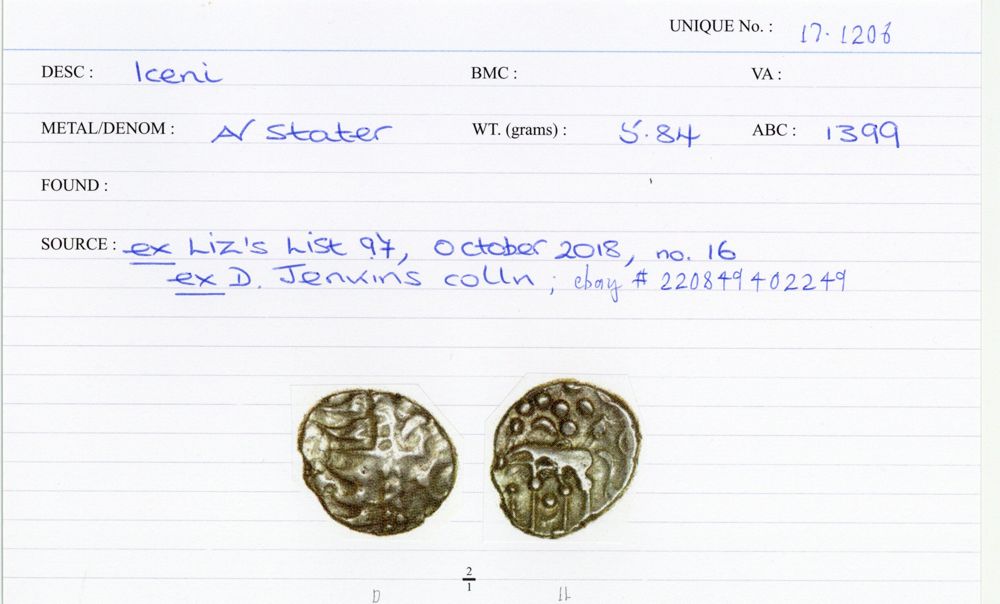 UNIQUE No. : 17.1206
DESC : Iceni BMC : VA :
METAL/DENOM : AV Stater WT. (grams) : 5.84 ABC : 1399
FOUND :
SOURCE : ex Liz's List 97, October 2018, no. 16
ex D. Jenkins colln ; ebay # 220849402249
2
1